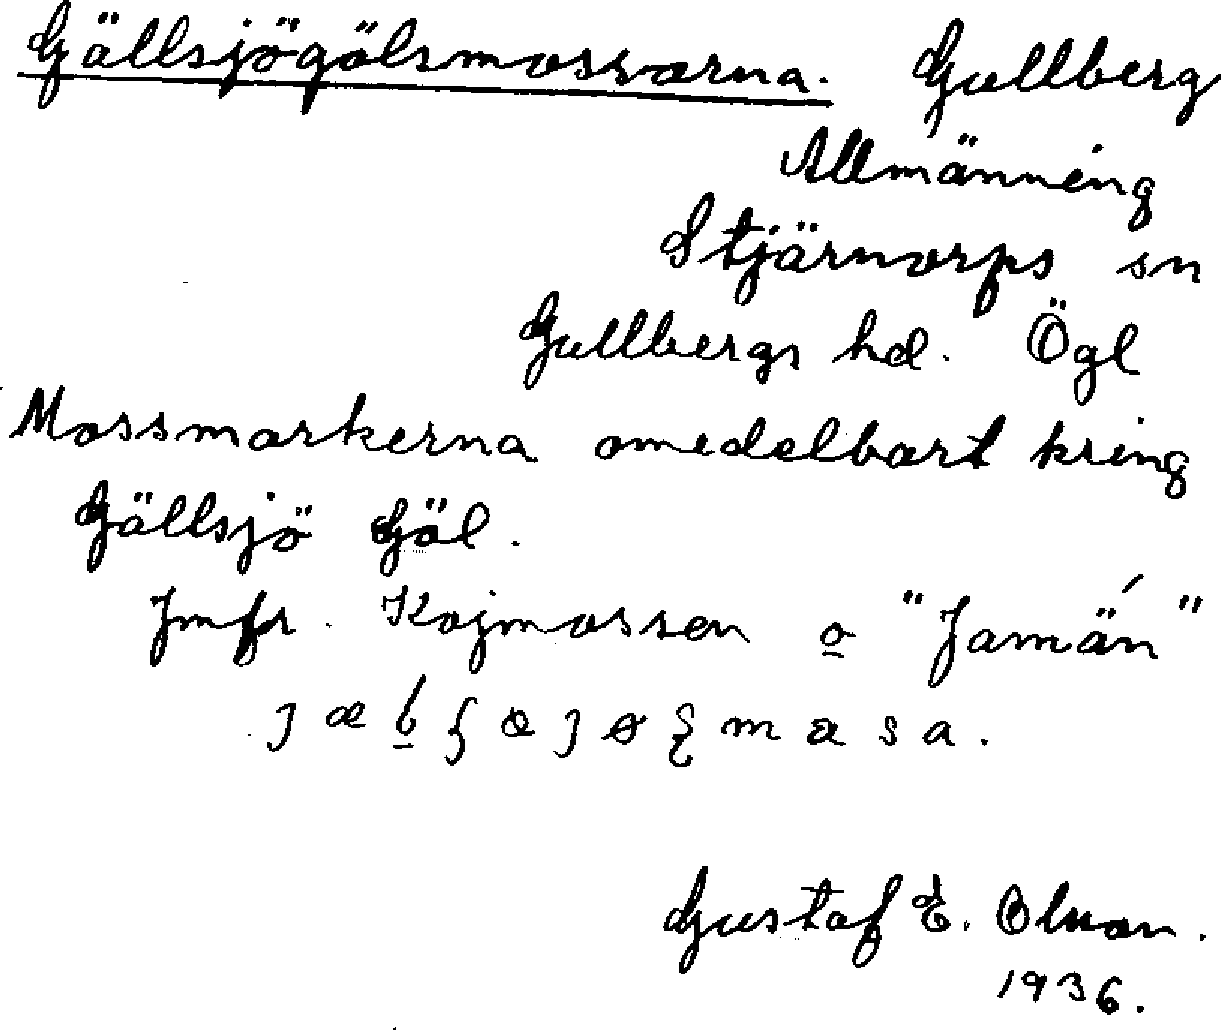 Gällsjögölsmossarna. Gullberg
Allmänning
Stjärnorps sn
Gullbergs hd. Ögl
Mossmarkerna omedelbart kring
Gällsjö Göl.
Jmfr. Kojmossen o "Jamän"
Gustaf E. Olson.
1936.